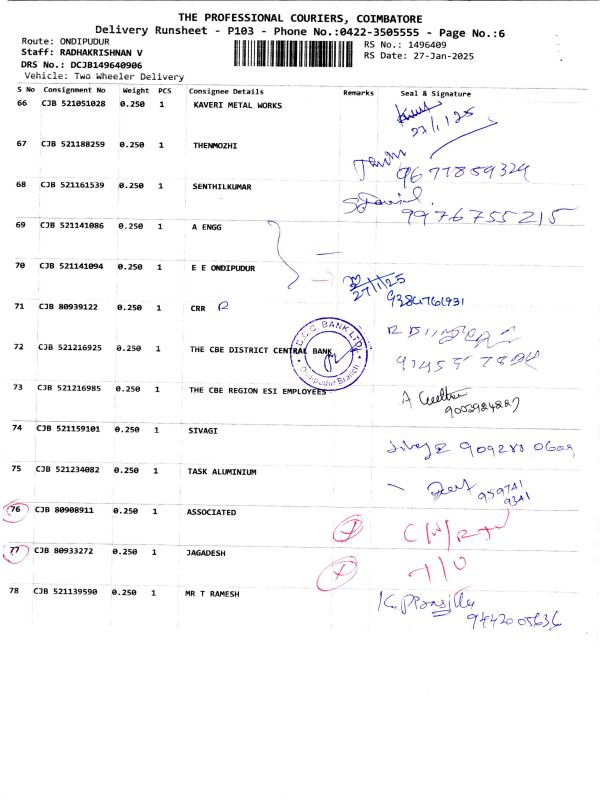 THE PROFESSIONAL COURIERS, COIMBATORE
Delivery Runsheet - P103 - Phone No.:0422-3505555 - Page No.:6
Route: ONDIPUDUR
RS No.: 1496409
Staff: RADHAKRISHNAN V
RS Date: 27-Jan-2025
DRS No.: DCJB149640906
Vehicle: Two Wheeler Delivery
S No Consignment No Weight PCS Consignee Details Remarks Seal & Signature
66 CJB 521051028 0.250 1 KAVERI METAL WORKS
27/1/25
67 CJB 521188259 0.250 1 THENMOZHI
9677859324
68 CJB 521161539 0.250 1 SENTHILKUMAR
9976755215
69 CJB 521141086 0.250 1 A ENGG
70 CJB 521141094 0.250 1 E E ONDIPUDUR
27/1/25
71 CJB 80939122 0.250 1 CRR R
72 CJB 521216925 0.250 1 THE CBE DISTRICT CENTRAL BANK
D.C.C. BANK LTD.
Ondipudur Branch
73 CJB 521216985 0.250 1 THE CBE REGION ESI EMPLOYEES
74 CJB 521159101 0.250 1 SIVAGI
75 CJB 521234082 0.250 1 TASK ALUMINIUM
959741
9341
76 CJB 80908911 0.250 1 ASSOCIATED
77 CJB 80933272 0.250 1 JAGADESH
78 CJB 521139590 0.250 1 MR T RAMESH
9442005636